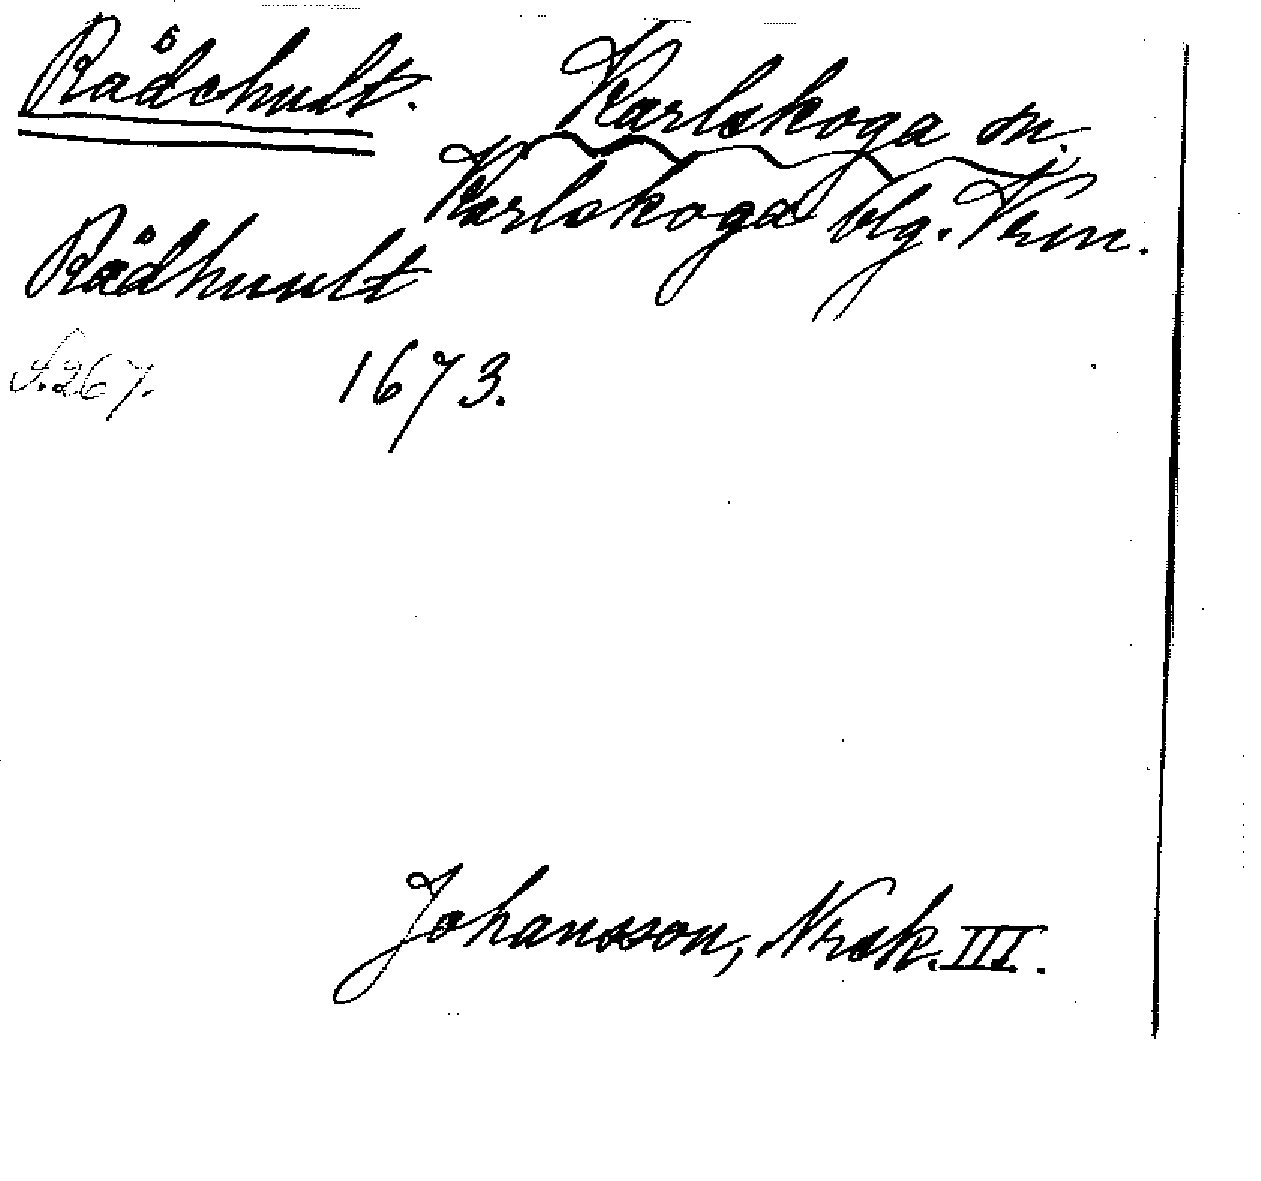 Rådehult. Karlskoga sn.
Karlskoga blg. Vrm.
Rådhuult
S. 267. 1673.
Johansson, Nrsk. III.